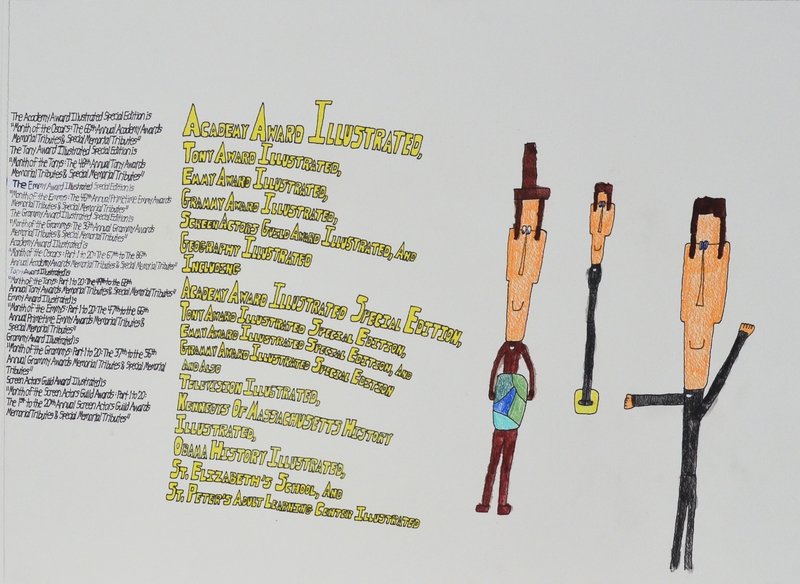 The Academy Award Illustrated Special Edition is
"Month of the Oscars: The 66th Annual Academy Awards
Memorial Tributes & Special Memorial Tributes"
The Tony Award Illustrated Special Edition is
"Month of the Tonys: The 48th Annual Tony Awards
Memorial Tributes & Special Memorial Tributes"
The Emmy Award Illustrated Special Edition is
"Month of the Emmys: The 46th Annual Primetime Emmy Awards
Memorial Tributes & Special Memorial Tributes"
The Grammy Award Illustrated Special Edition is
"Month of the Grammys: The Annual Grammy Awards
Memorial Tributes & Special Memorial Tributes"
Academy Award Illustrated is
"Month of the Oscars: Part 1 to 20: The 67th to The 86th
Annual Academy Awards Memorial Tributes & Special Memorial Tributes"
Tony Award Illustrated is
"Month of the Tonys: Part 1 to 20: The 49th to the 68th
Annual Tony Awards Memorial Tributes & Special Memorial Tributes"
Emmy Award Illustrated is
"Month of the Emmys: Part 1 to 20: The 47th to the 66th
Annual Primetime Emmy Awards Memorial Tributes &
Special Memorial Tributes"
Grammy Award Illustrated is
"Month of the Grammys: Part 1 to 20: The 37th to the 56th
Annual Grammy Awards Memorial Tributes & Special Memorial
Tributes"
Screen Actors Guild Award Illustrated is
"Month of the Screen Actors Guild Awards: Part 1 to 20:
The 1st to the 20th Annual Screen Actors Guild Awards
Memorial Tributes & Special Memorial Tributes"
Academy Award Illustrated,
Tony Award Illustrated,
Emmy Award Illustrated,
Grammy Award Illustrated,
Screen Actors Guild Award Illustrated, And
Geography Illustrated
Including
Academy Award Illustrated Special Edition,
Tony Award Illustrated Special Edition,
Emmy Award Illustrated Special Edition, And
Grammy Award Illustrated Special Edition
And Also
Television Illustrated,
Kennedys Of Massachusetts History
Illustrated,
Obama History Illustrated,
St. Elizabeth's School, And
St. Peter's Adult Learning Center Illustrated